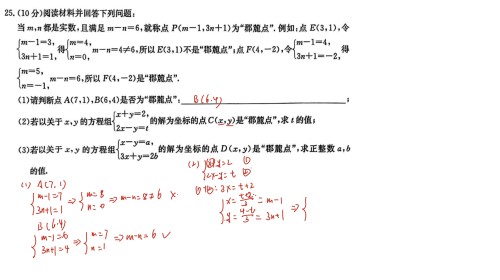 25.(10分)阅读材料并回答下列问题:
当m,n都是实数,且满足m-n=6,就称点P(m-1,3n+1)为“郡麓点”.例如:点E(3,1),令
{m-1=3, 3n+1=1, 得{m=4, n=0, m-n=4≠6,所以E(3,1)不是“郡麓点”;点F(4,-2),令{m-1=4, 3n+1=-2, 得
{m=5, n=-1, m-n=6,所以F(4,-2)是“郡麓点”.
(1)请判断点A(7,1),B(6,4)是否为“郡麓点”: B(6.4) ;
(2)若以关于x,y的方程组{x+y=2, 2x-y=t 的解为坐标的点C(x,y)是“郡麓点”,求t的值;
(3)若以关于x,y的方程组{x-y=a, 3x+y=2b 的解为坐标的点D(x,y)是“郡麓点”,求正整数a,b
的值.
(1) A(7,1)
{m-1=7 3n+1=1 ⇒ {m=8 n=0 ⇒ m-n=8≠6 ×
B(6.4)
{m-1=6 3n+1=4 ⇒ {m=7 n=1 ⇒ m-n=6 ✓
(2) {x+y=2 ① 2x-y=t ②
①+②: 3x=t+2
{x=t+2/3=m-1 y=4-t/3=3n+1 ⇒ {